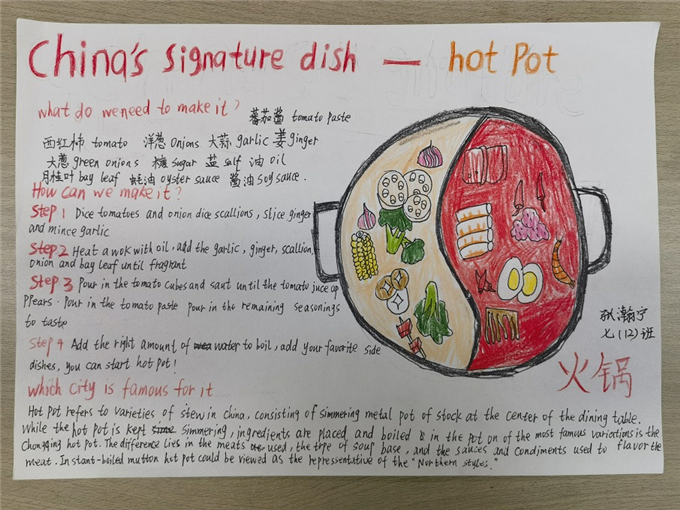 China's signature dish — hot Pot
what do we need to make it?
蕃茄酱 tomato paste
西红柿 tomato 洋葱 onions 大蒜 garlic 姜 ginger
大葱 green onions 糖 sugar 盐 salf 油 oil
月桂叶 bay leaf 蚝油 oyster sauce 酱油 soy sauce.
How can we make it?
Step 1 Dice tomatoes and onion dice scallions, slice ginger
and mince garlic
Step 2 Heat a wok with oil, add the garlic, ginger, scallion,
onion and bay leaf until fragrant
Step 3 Pour in the tomato cubes and saut until the tomato juce ap
ppears. Pour in the tomato paste pour in the remaining seasonings
to taste
Step 4 Add the right amount of water to boil, add your favorite side
dishes, you can start hot pot!
which City is famous for it
Hot pot refers to varieties of stew in china, consisting of simmering metal pot of stock at the center of the dining table.
While the hot pot is kept simmering, ingredients are placed and boiled in the pot on of the most famous variations is the
Chongqing hot pot. The difference lies in the meats used, the type of soup base, and the sauces and condiments used to flavor the
meat. Instant-boiled mutton hot pot could be viewed as the representative of the "Northern styles."
瀚宁
七(12)班
火锅